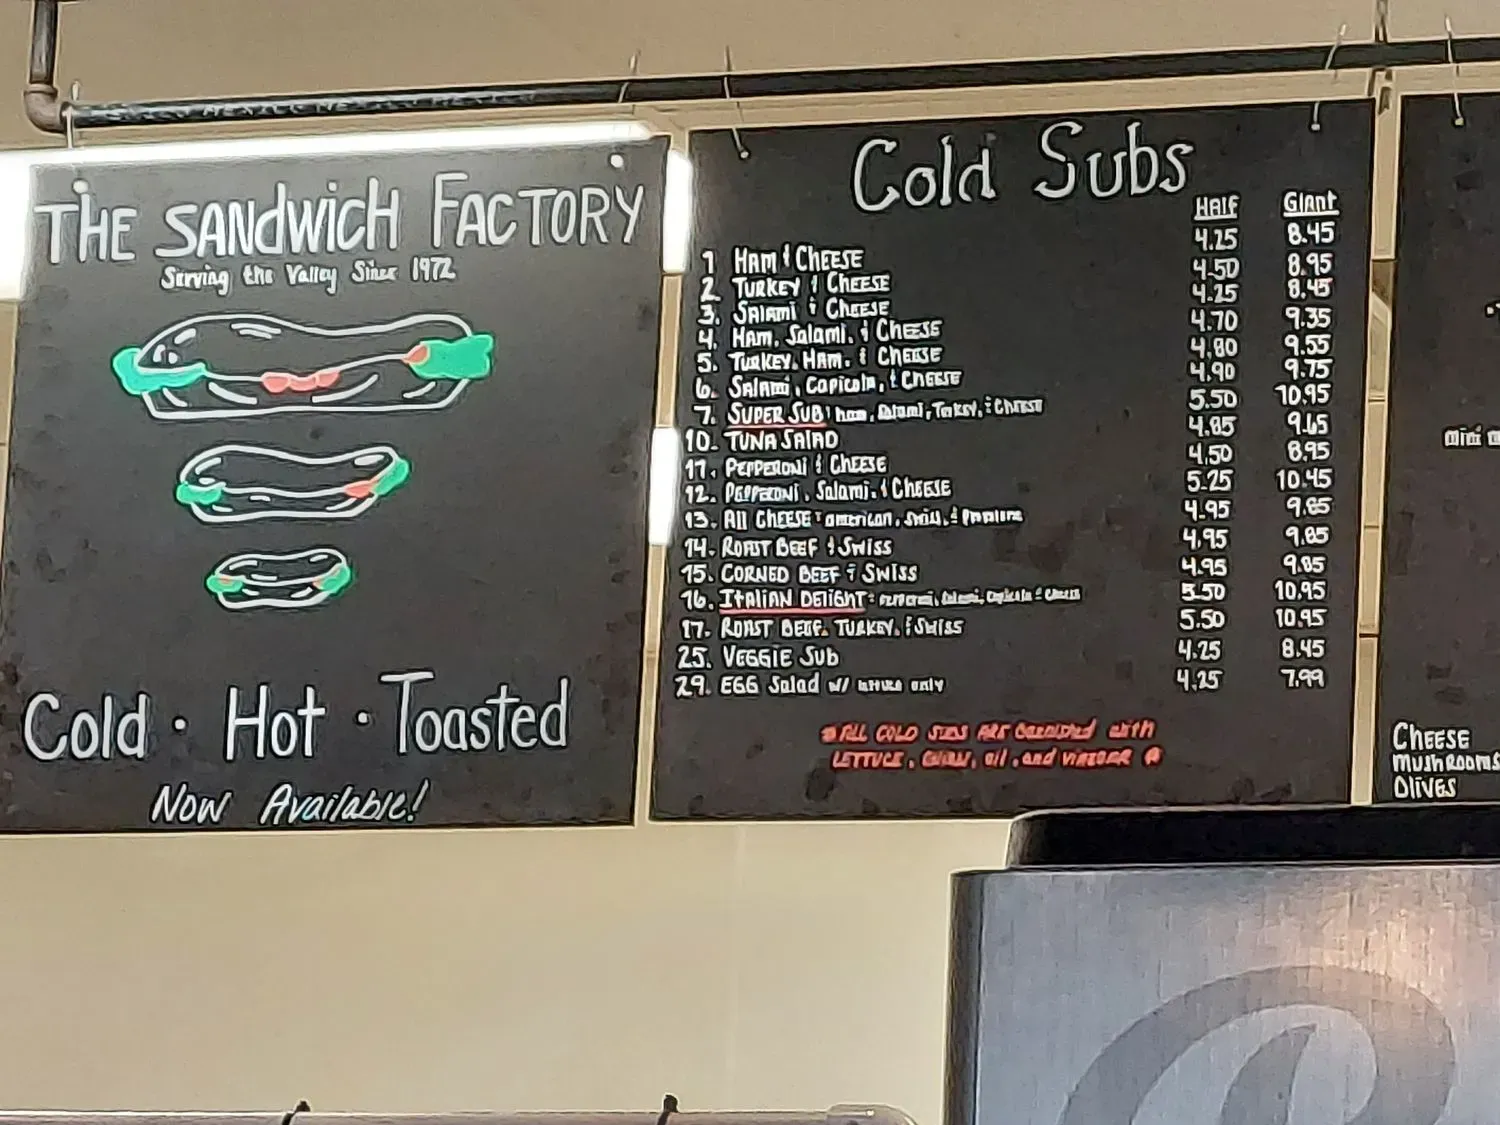 THE SANDWICH FACTORY
Serving the Valley Since 1972
Cold · Hot · Toasted
Now Available!
Cold Subs
HALF GIANT
1 HAM & CHEESE 4.25 8.45
2. TURKEY & CHEESE 4.50 8.95
3. SALAMI & CHEESE 4.25 8.45
4. HAM, SALAMI, & CHEESE 4.70 9.35
5. TURKEY, HAM, & CHEESE 4.80 9.55
6. SALAMI, CAPICOLA, & CHEESE 4.90 9.75
7. SUPER SUB: ham, Salami, Turkey, & CHEESE 5.50 10.95
10. TUNA SALAD 4.85 9.65
11. PEPPERONI & CHEESE 4.50 8.95
12. PEPPERONI, Salami, & CHEESE 5.25 10.45
13. All CHEESE: american, swiss, & Provolone 4.95 9.85
14. ROAST BEEF & SWISS 4.95 9.85
15. CORNED BEEF & SWISS 4.95 9.85
16. ITALIAN DELIGHT: PEPPERONI, Salami, Capicola & CHEESE 5.50 10.95
17. ROAST BEEF, TURKEY, & SWISS 5.50 10.95
25. VEGGIE SUB 4.25 8.45
29. EGG Salad w/ lettuce only 4.25 7.99
*ALL COLD SUBS ARE Garnished with
LETTUCE, Onion, oil, and vinegar *
mini
CHEESE
MUSHROOMS
OLIVES